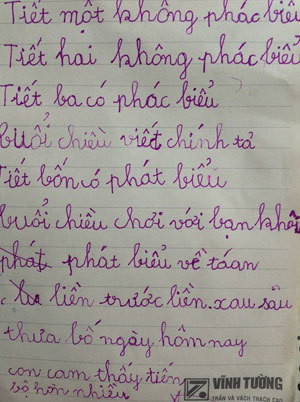 Tiết một không phác biể
Tiết hai không phác biể
Tiết ba có phác biểu
buổi chiều viết chính tả
Tiết bốn có phát biểu
buổi chiều chơi với bạn khô
phát phát biểu về táan
liền trước liền xau sủu
thưa bố ngày hôm nay
con cam thấy tiến
bộ hơn nhiều
VĨNH TƯỜNG
TRẦN VÀ VÁCH THẠCH CAO